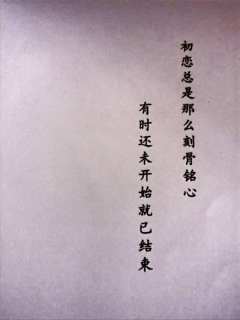 初恋总是那么刻骨铭心
有时还未开始就已结束